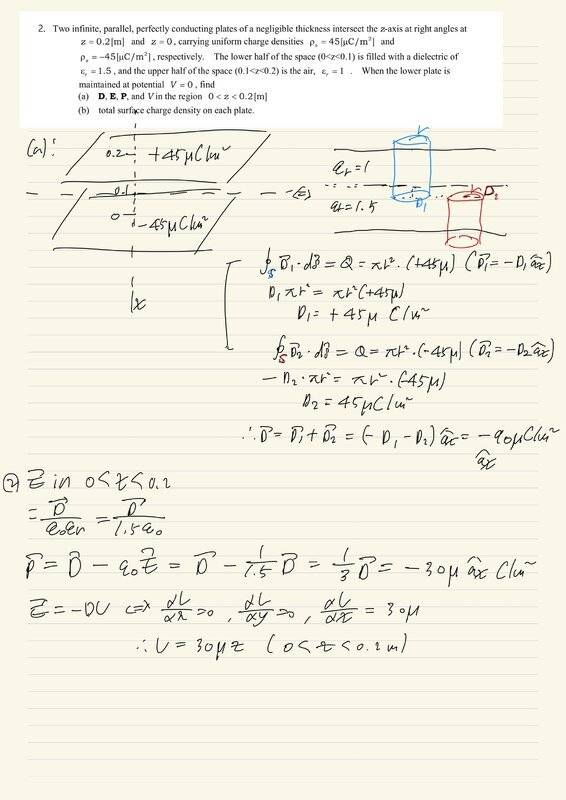 2. Two infinite, parallel, perfectly conducting plates of a negligible thickness intersect the z-axis at right angles at
z = 0.2[m] and z = 0, carrying uniform charge densities ρs = 45[μC/m²] and
ρs = −45[μC/m²], respectively. The lower half of the space (0<z<0.1) is filled with a dielectric of
εr = 1.5, and the upper half of the space (0.1<z<0.2) is the air, εr = 1 . When the lower plate is
maintained at potential V = 0, find
(a) D, E, P, and V in the region 0 < z < 0.2[m]
(b) total surface charge density on each plate.
(a):
0.2
+45μC/m²
0.1
0
-45μC/m²
z
⇔
r
εr=1
εr=1.5
D1
r
D2
∮s D⃗1·ds⃗ = Q = πr²·(+45μ) (D⃗1 = -D1 âz)
D1πr² = πr²(+45μ)
D1 = +45μ C/m²
∮s D⃗2·ds⃗ = Q = πr²·(-45μ) (D⃗2 = -D2 âz)
-D2·πr² = πr²·(-45μ)
D2 = 45μC/m²
∴ D⃗ = D⃗1 + D⃗2 = (-D1 - D2) âz = -90μC/m² âz
(2) E in 0<z<0.2
= D⃗/ε0εr = D⃗/1.5ε0
P⃗ = D⃗ - ε0E⃗ = D⃗ - 1/1.5 D⃗ = 1/3 D⃗ = -30μ âz C/m²
E = -∇V ⇔ dV/dx = 0, dV/dy = 0, dV/dz = 30μ
∴ V = 30μz (0<z<0.2m)